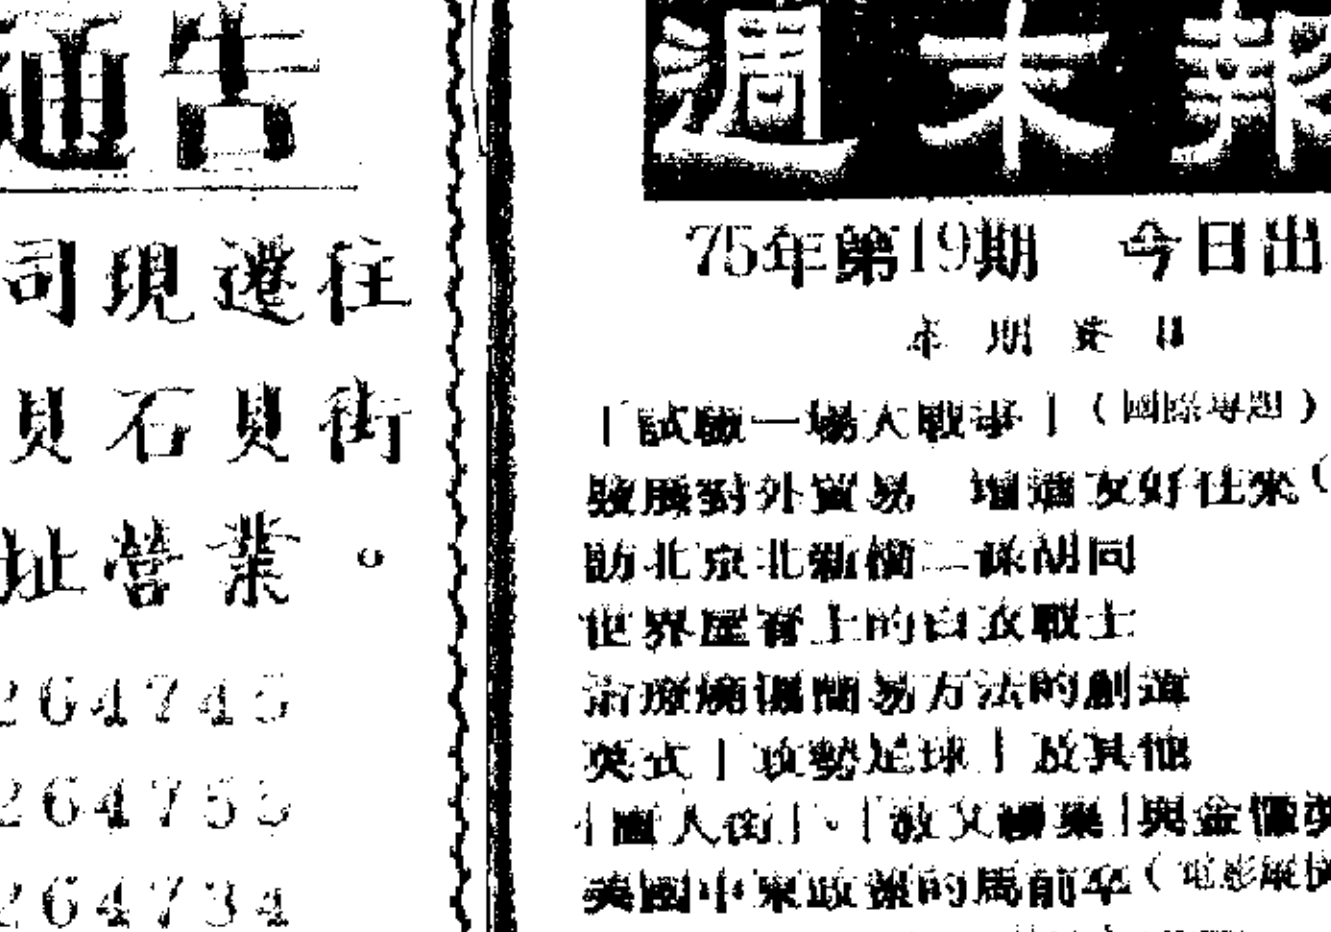 通告
司現遷往
貝石貝街
址營業。
264745
264755
264734
週末報
75年第19期 今日出
本期要目
「試驗一場大戰爭」(國際專題)
發展對外貿易 增進友好往來(
訪北京北新橋二條胡同
世界屋脊上的白衣戰士
治療燒傷簡易方法的創造
英式「攻勢足球」及其他
人街」、「教父
美國中東政策的馬前卒(電影縱橫